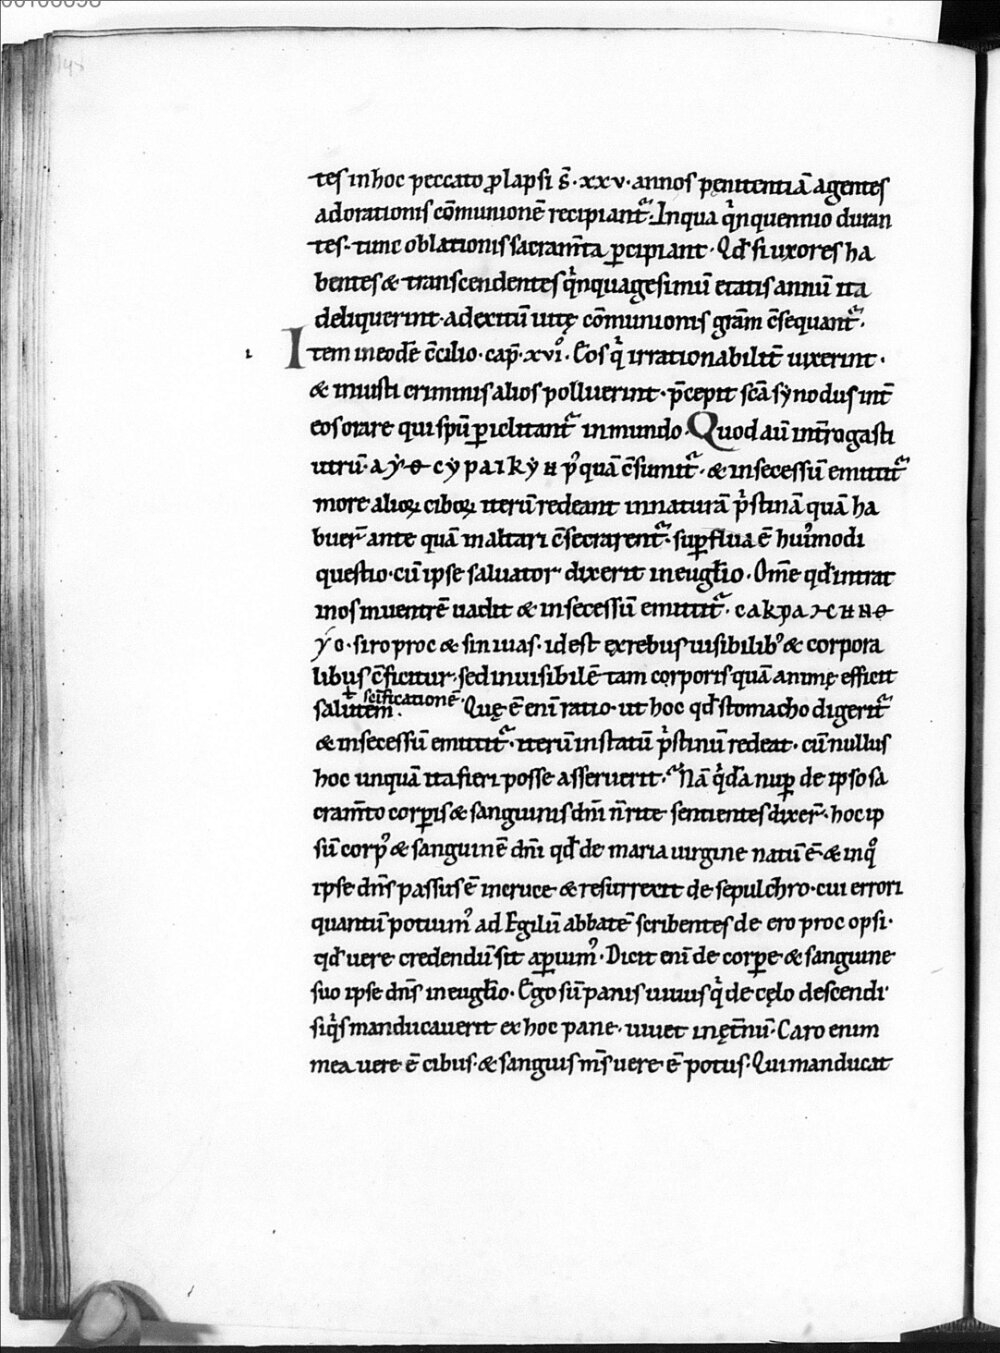 tes in hoc peccato ꝓlapsi s̄ · xxv · annos penitentiā agentes
adorationis cōmunionē recipiant᷑ · In qua qͥnquennio duran
tes · tunc oblationis sacram̄ta ꝑcipiant · Qđ si uxores ha
bentes & transcendentes qͥnquagesimū etatis annū ita
deliquerint · ad exitū uitę cōmunionis gr̄am c̄sequant᷑ ·
Item in eodē c̄cilio · cap̄ · xviͦ · Eos qͥ irrationabilit̄ uixerint ·
& iniusti criminis alios polluerint · p̄cepit sc̄a synodus int̄
eos orare qui spū ꝑiclitant᷑ in mundo · Quod aū int̄rogasti
utrū · pꝰquā c̄sumit᷑ · & in secessū emittit᷑
more alioꝝ ciboꝝ iterū redeant in naturā pͥstinā quā ha
buer̄ ante quā in altari c̄secrarent᷑ · suꝑflua ē huiꝰmodi
questio · cū ipse saluator dixerit in euḡlio · Om̄e qđ intrat
in os in uentrē uadit & in secessū emittit᷑ ·
siroproc & sinuas · id est ex rebus uisibilibꝰ & corpora
libus c̄ficitur · sed inuisibilē tam corporis quā animę efficit
ł sc̄ificationē
salutem · Quę ē eni ratio · ut hoc qđ stomacho digerit᷑
& in secessū emittit᷑ · iterū in statū pͥstinū redeat · cū nullus
hoc unquā ita fieri posse asseruerit · Nā qͥdā nuꝑ de ipso sa
cram̄to corꝑis & sanguinis dn̄i n̄ rite sentientes dixer̄ · hoc ip
sū corpꝰ & sanguinē dn̄i qđ de maria uirgine natū ē · & in qͦ
ipse dn̄s passus ē in cruce & resurrexit de sepulchro · cui errori
quantū potuimꝰ ad Egilū abbatē scribentes de ero proc opsi ·
qđ uere credendū sit aꝑuimꝰ · Dicit eni de corꝑe & sanguine
suo ipse dn̄s in euḡlio · Ego sū panis uiuus qͥ de cęlo descendi
si qͥs manducauerit ex hoc pane · uiuet in ęt̄nū · Caro enim
mea uere ē cibus · & sanguis m̄s uere ē potus · Qui manducat